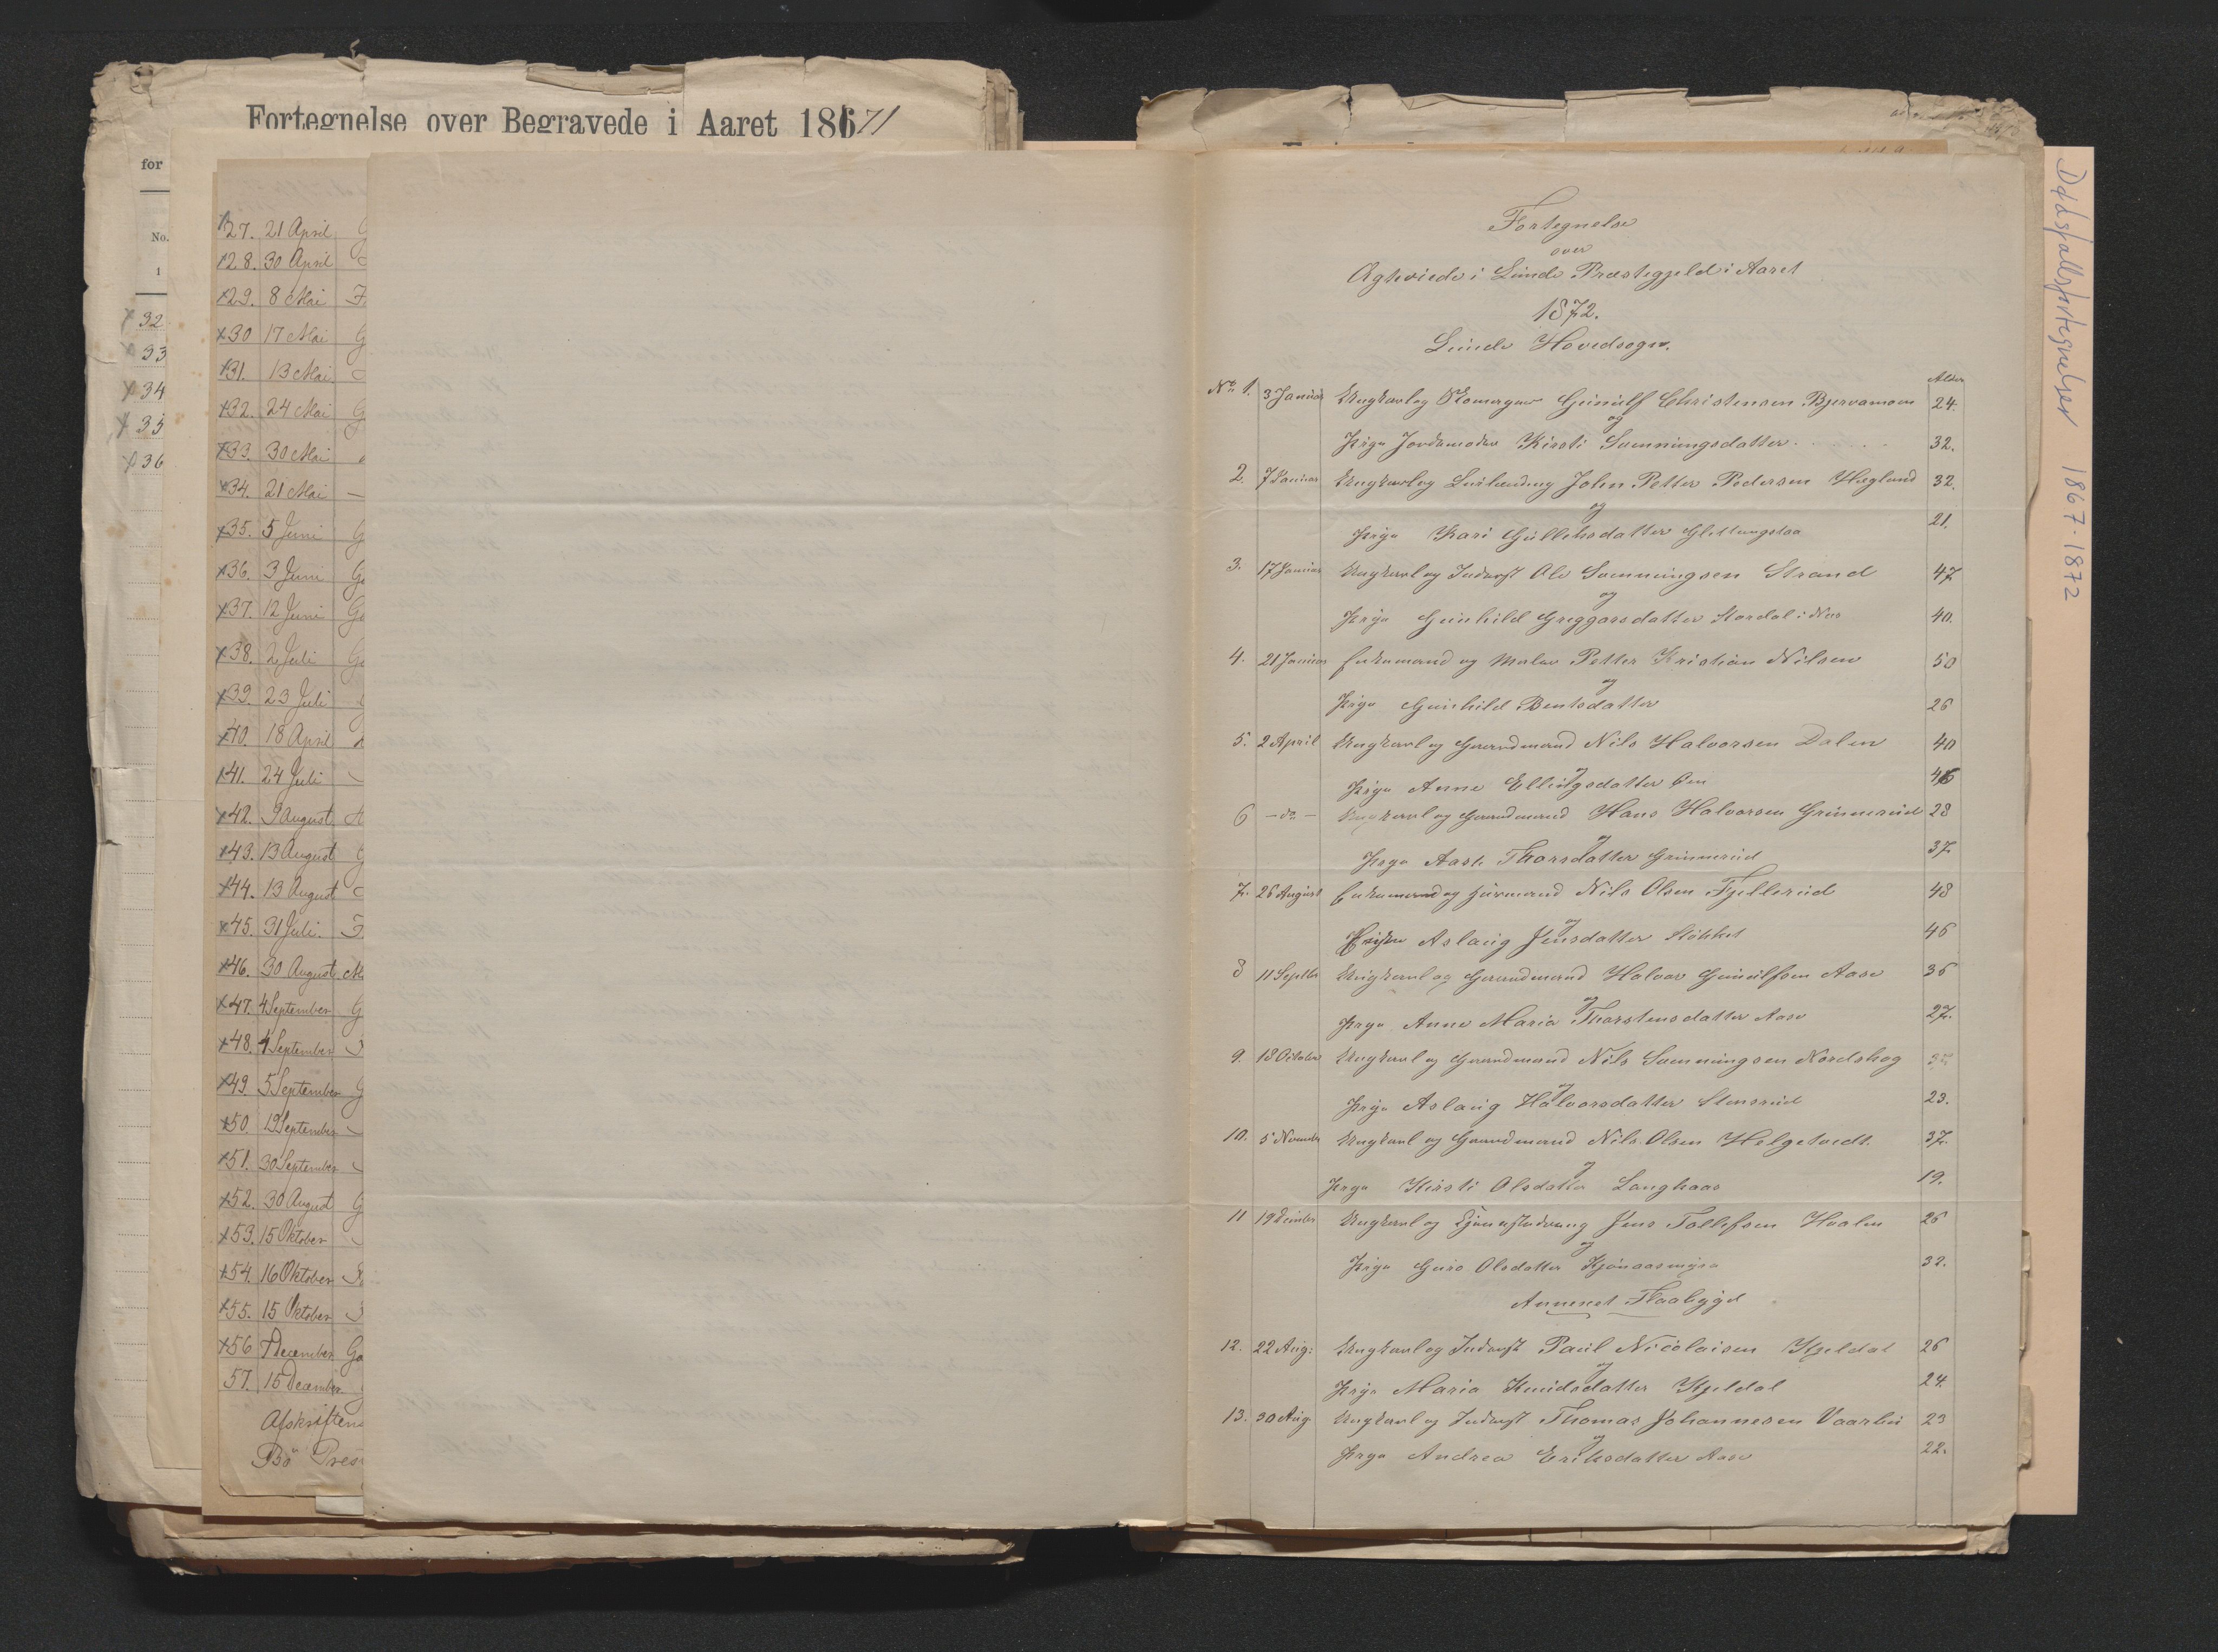 Fortegnelse over Begravede i Aaret 1871
for
No.
1
x 32
x 33
x 34
x 35
x 36
x27. 21 April G
x28. 30 April
x29. 8 Mai F
x30 17 Mai G
x31. 13 Mai
x32. 24 Mai G
x33. 30 Mai
x34. 21 Mai —
x35. 5 Juni G
x36. 3 Juni G
x37. 12 Juni G
x38. 2 Juli G
x39. 23 Juli
x40. 18 April
x41. 24 Juli
x42. 9 August A
x43. 13 August G
x44. 13 August
x45. 31 Juli. F
x46. 30 August
x47. 4 September G
x48. 4 September
x49. 5 September G
x50. 19 September
x51. 30 September
x52. 30 August G
x53. 15 Oktober
x54. 16 Oktober
x55. 15 Oktober
x56 7 December Ga
57. 15 December
Afskriftens
Bö Pres
Fortegnelse
over
Ægteviede i Lunde Præstegjeld i Aaret
1872.
Lunde Hovedsogn.
Alder
No 1. 3 Januar Ungkarl og Gunulf Christensen Bjervamoen 24.
og
Pige Jordemoder Kirsti Sømmungsdatter 32.
2. 7 Januar Ungkarl og John Petter Pedersen Hægland 32.
og
Pige Kari Gulleksdatter 21.
3. 17 Januar Ungkarl og Inderst Ole Sømmungsen Strand 47
og
Pige Gunhild Greggarsdatter Stordal i Næs 40.
4. 21 Januar Enkemand og Maler Petter Kristian Nilsen 50
og
Pige Gunhild Bentsdatter 26
5. 2 April Ungkarl og Gaardmand Nils Halvorsen Dalen 40
og
Pige Anne Ellingsdatter Øen
6 — do — Ungkarl og Gaardmand Hans Halvorsen Grimmerud 28
og
Pige Aase Thorsdatter Grimmerud 37
7. 26 August Enkemand og Huusmand Nils Olsen Fjellerud 48
og
Aslaug Jensdatter Slökket 46
8 11 Septbr Ungkarl og Gaardmand Halvor Gunulfsen Aase 36
og
Pige Anne Maria Thorstensdatter Aase 27.
9. 18 October Ungkarl og Gaardmand Nils Sømmungsen Nordskog
og
Pige Aslaug Halvorsdatter Stensrud 23.
10. 5 November Ungkarl og Gaardmand Nils Olsen Helgetvedt. 37.
og
Pige Kirsti Olsdatter Langkaas 19.
11 19 Decmbr Ungkarl og Jens Tollefsen Hvalen 26
og
Pige Guro Olsdatter Kjönaasmyra 32.
Annexet Flaabygd
12. 22 Aug: Ungkarl og Inderst Paul Nicolaisen Kjeldal 26
og
Pige Maria Knudsdatter Kjeldal 24.
13. 30 Aug. Ungkarl og Inderst Thomas Johannesen Vaarli 23
og
Pige Andrea Eriksdatter Aase 22.
Dødsfallsfortegnelser 1867-1872